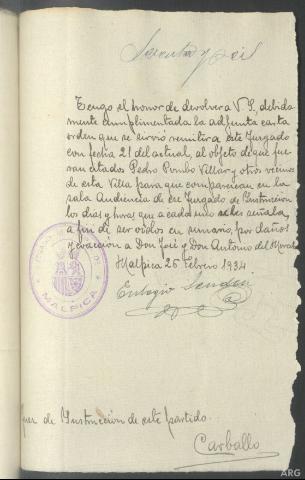 Sesenta y seis
Tengo el honor de devolver a V. S. debida-
mente cumplimentada la adjunta carta
orden que se sirvió remitir a este Juzgado
con fecha 21 del actual, al objeto de que fue-
ran citados Pedro Pombo Villar y otros vecinos
de esta Villa para que comparezcan en la
sala Audiencia de ese Juzgado de Instrucción
los dias y horas que a cada uno se les señala,
a fin de ser oidos en sumario, por daños
y coacción a Don José y Don Antonio del Moral
Malpica 25 Febrero 1934
Eulogio
MALPICA
Juez de Instrucción de este partido.
Carballo
ARG